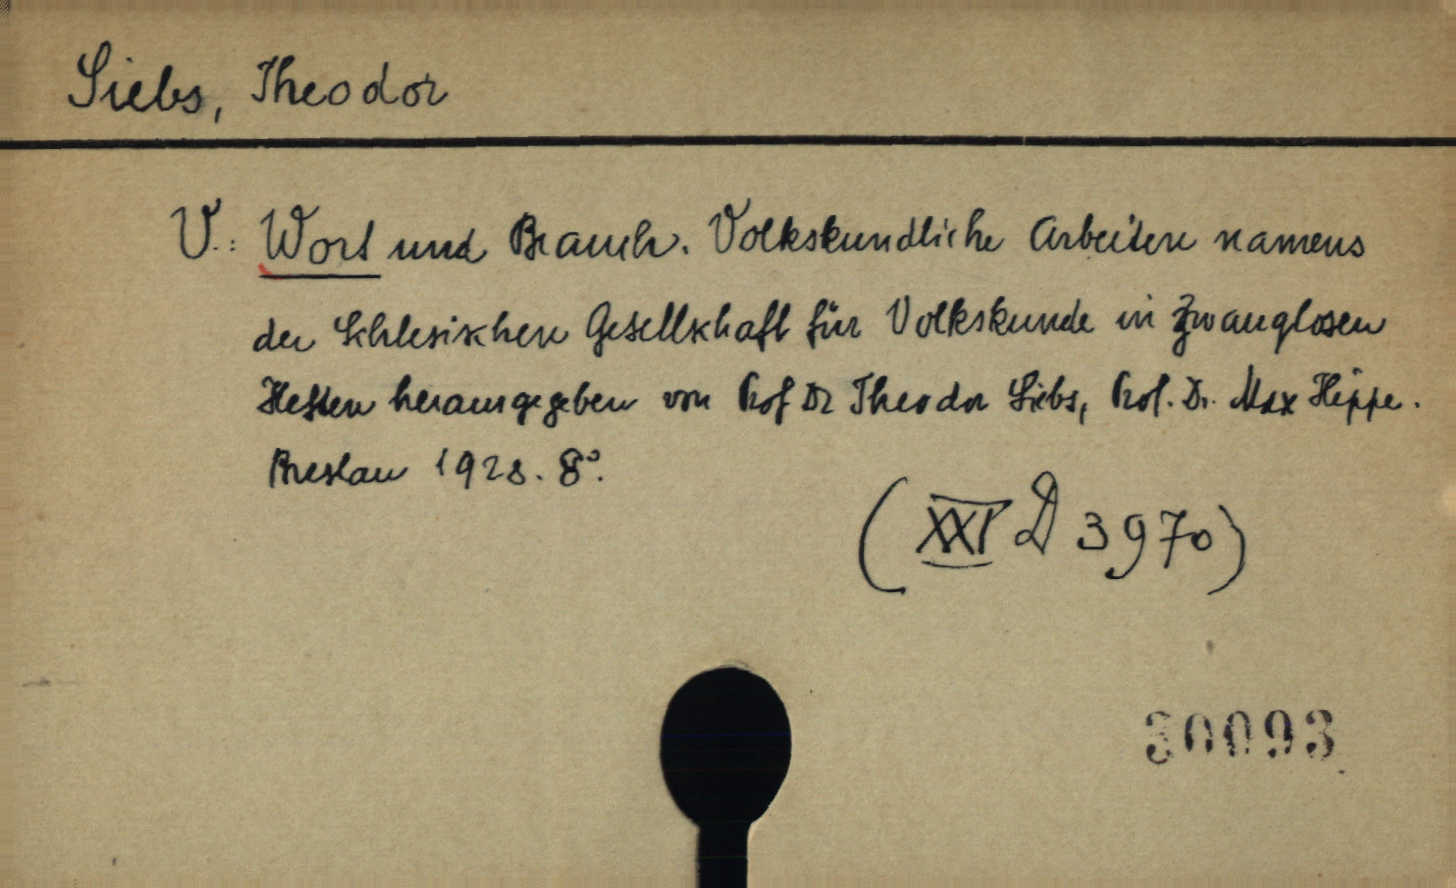 Siebs, Theodor
V.: Wort und Brauch. Volkskundliche Arbeiten namens
der Schlesischen Gesellschaft für Volkskunde in zwanglosen
Heften herausgegeben von Prof Dr Theodor Siebs, Prof. Dr. Max Hippe.
Breslau 1928. 8°.
(XXI D 3970)
30093